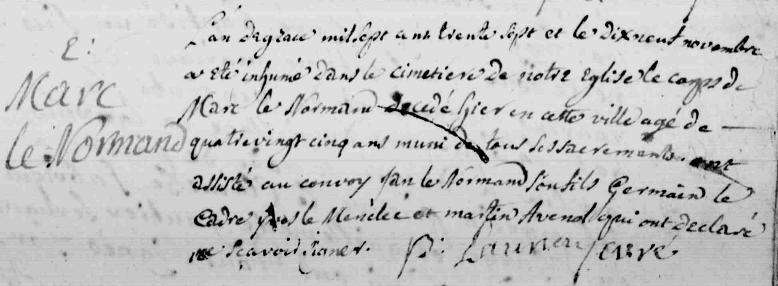 E.
Marc
le Normand
L'an de grace mil sept cens trente sept et le dix neuf novembre
a été inhumé dans le cimetiere de notre Eglise le corps de
Marc le Normand decedé hier en cette ville agé de
quatre vingt cinq ans muni de tous ses sacrements. ont
assisté au convoy Jan le Normand son fils Germain le
Cadre yves le Menedec et martin Avenol qui ont declaré
ne scavoir signer.